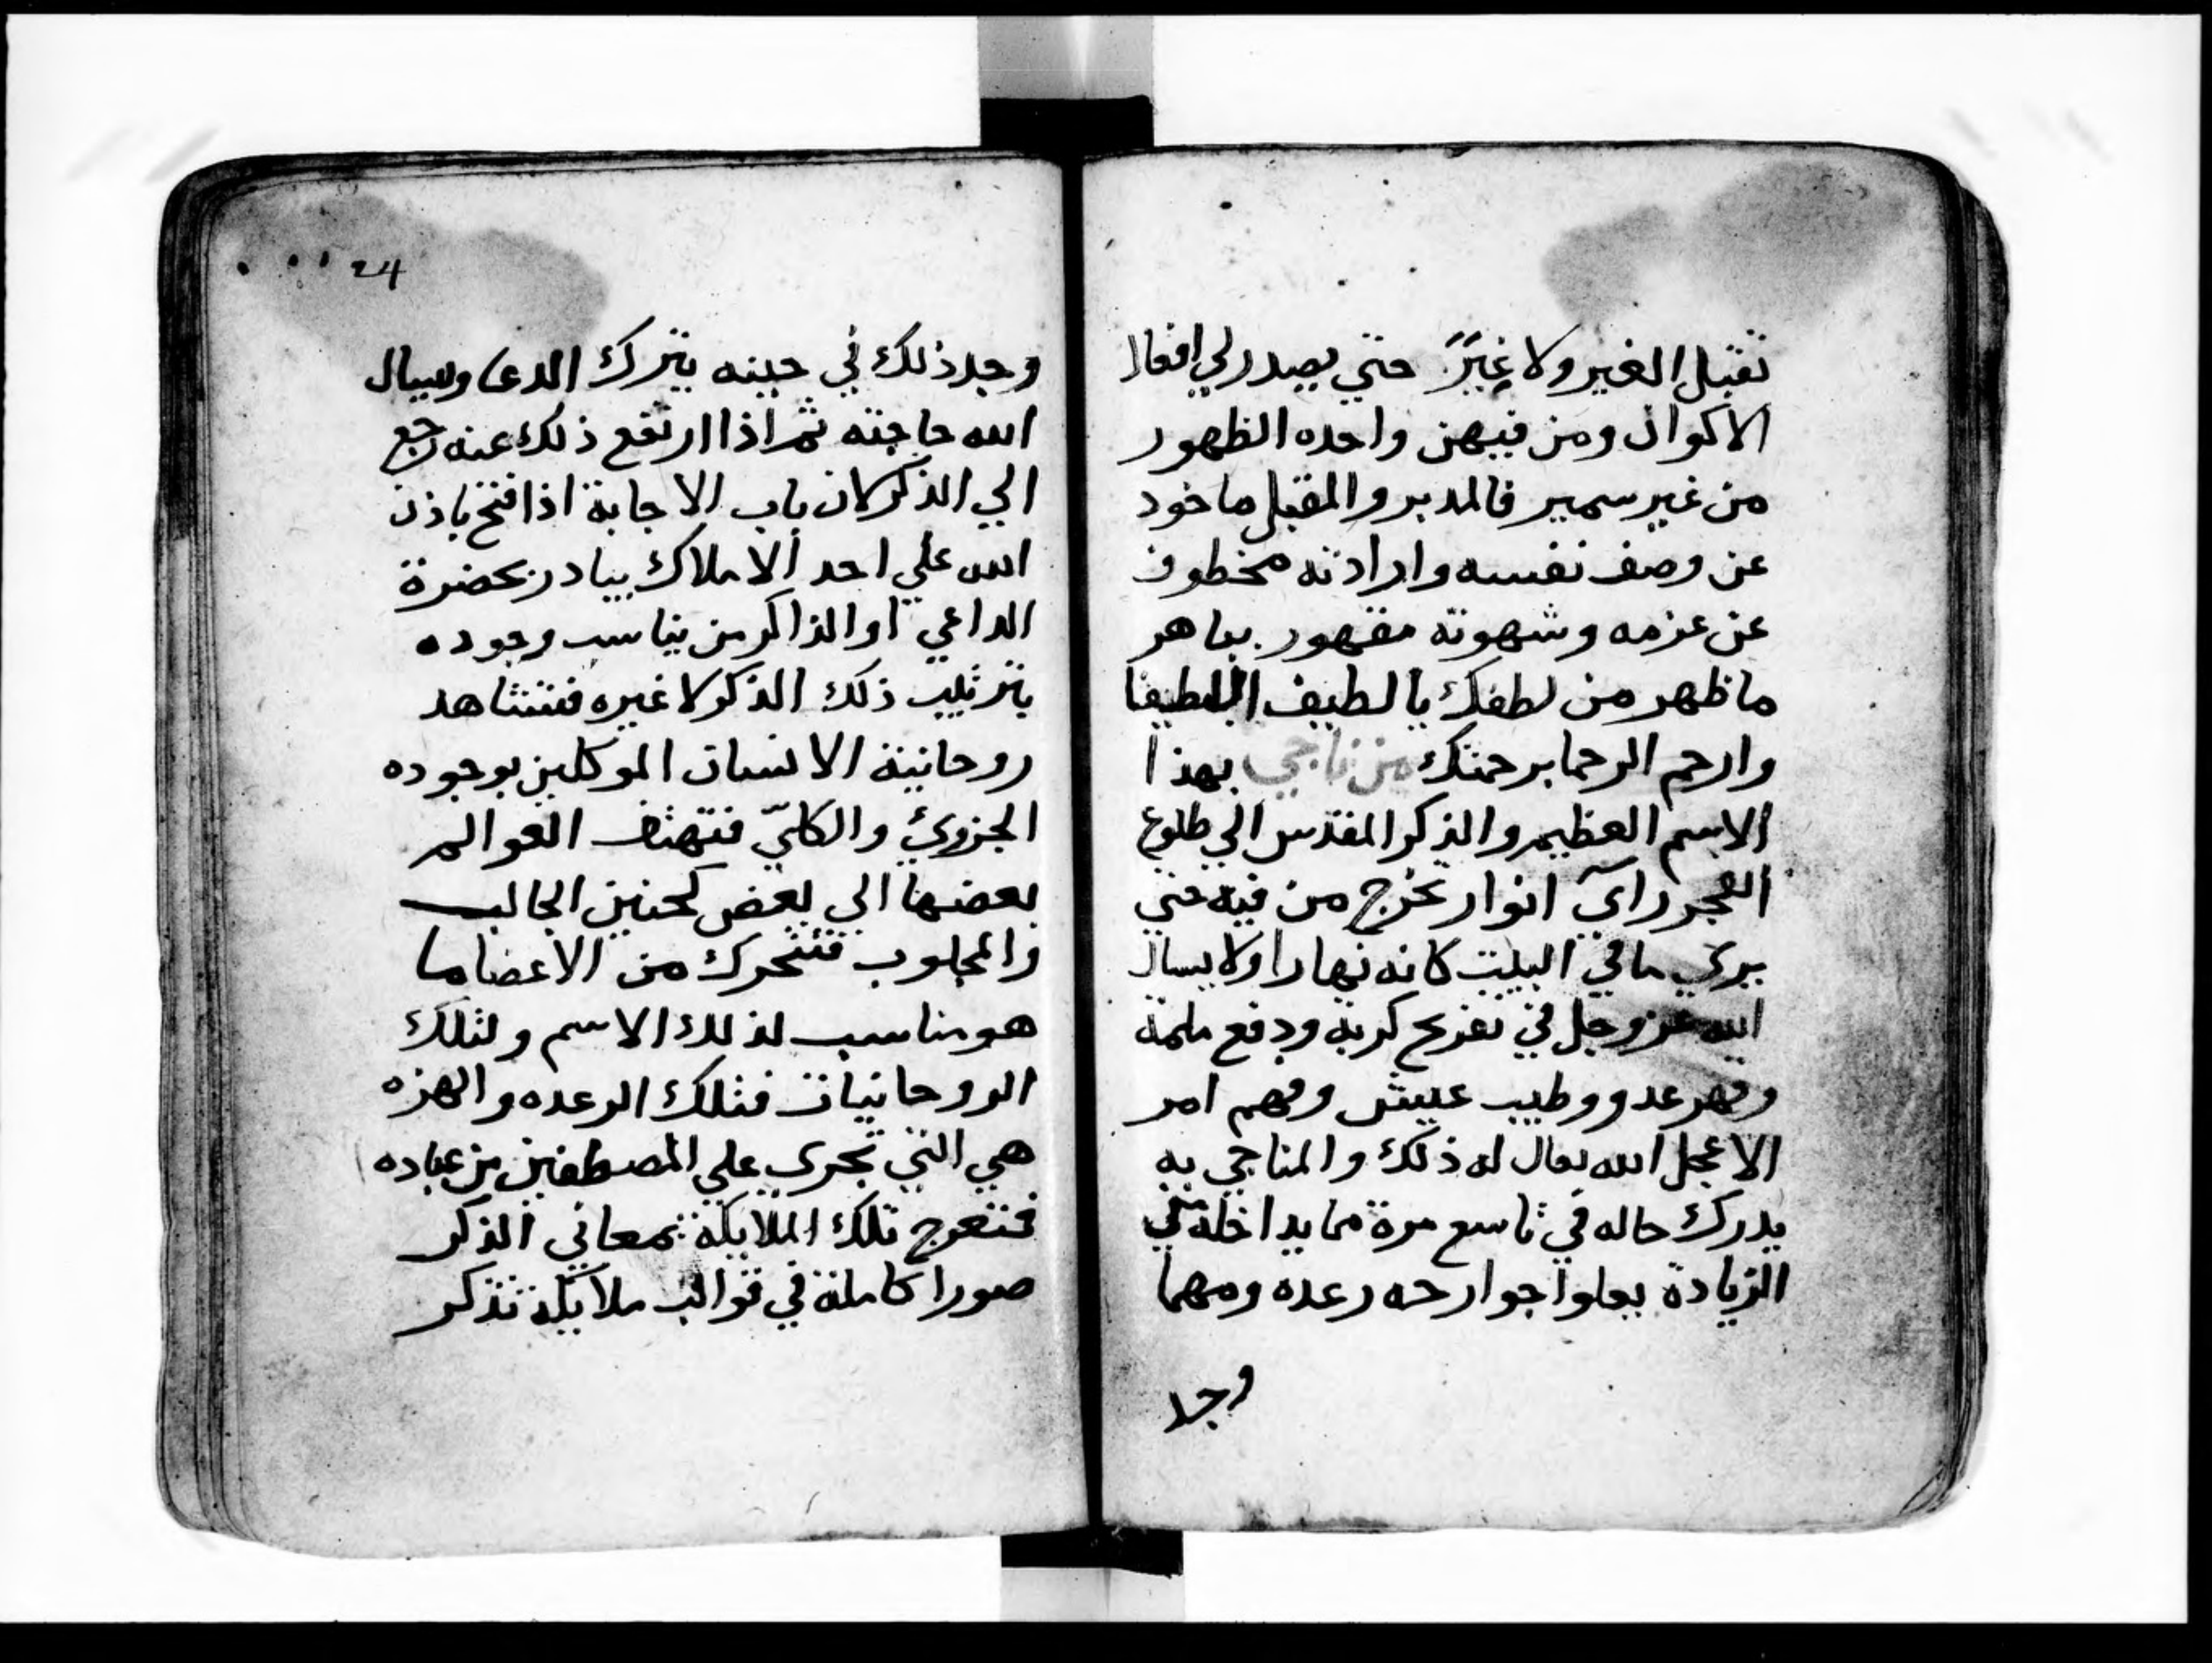 تقبل الغير ولا غيرً حتي يصدر لي افعال
الاكوان ومن فيهن واحده الظهور
من غير سمير فالمدبر والمقبل ماخود
عن وصف نفسه وارادته مخطوف
عن عزمه وشهوته مقهور بباهر
ما ظهر من لطفك يا لطيف اللطيفا
وارحم الرحما برحمتك من ناجي بهذا
الاسم العظيم والذكر المقدس الي طلوع
الفجر راي انوار تخرج من فيه حتي
يري ما في البيت كانه نهارا ولا يسال
الله عز وجل في تفريج كربه ودفع ملمة
وقهر عدو وطيب عيش وفهم امر
الا عجل الله تعال له ذلك والمناجي به
يدرك حاله في تاسع مرة مما يداخله في
الزيادة يعلوا جوارحه رعده ومهما
وجد
24
وجد ذلك في حينه يترك الدعا ويسال
الله حاجته ثم اذا ارتفع ذلك عنه رجع
الي الذكر لان باب الاجابة اذا فتح باذن
الله علي احد الاملاك يبادر بحضرة
الداعي او الذاكر من يناسب وجوده
بترتيب ذلك الذكر لا غيره فتتشاهد
روحانية الانسان الموكلين بوجوده
الجزوي والكلي فتهتف العوالم
بعضها الي بعض كحنين الجالب
والمجلوب فتتحرك من الاعضا ما
هو مناسب لذلك الاسم ولتلك
الروحانيات فتلك الرعده والهزه
هي التي تجري علي المصطفين من عباده
فتتعرج تلك الملايكة بمعاني الذكر
صورا كاملة في قوالب ملايكة تذكر